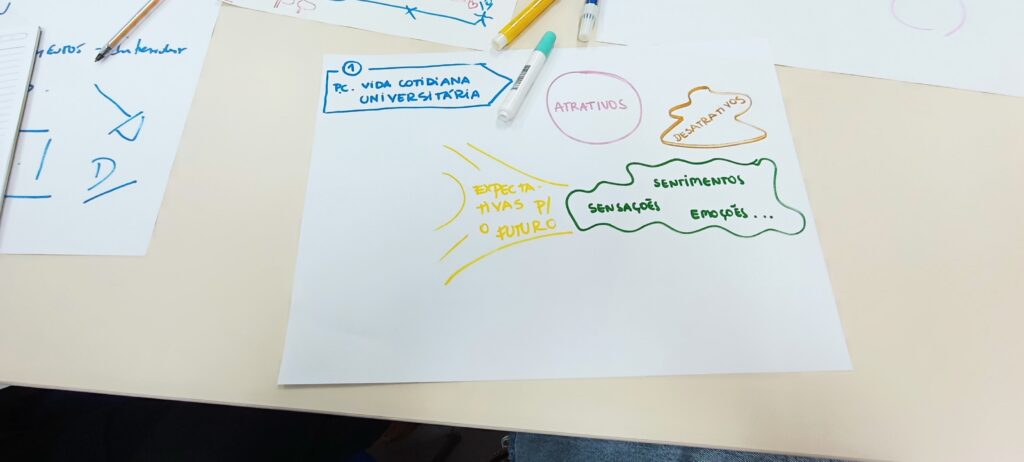 1
P.C. VIDA COTIDIANA
UNIVERSITÁRIA
ATRATIVOS
DESATRATIVOS
EXPECTA-
TIVAS P/
O FUTURO
SENTIMENTOS
SENSAÇÕES
EMOÇÕES...
D